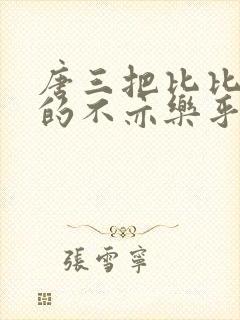 唐三把比比
的不亦樂乎
張雪寧